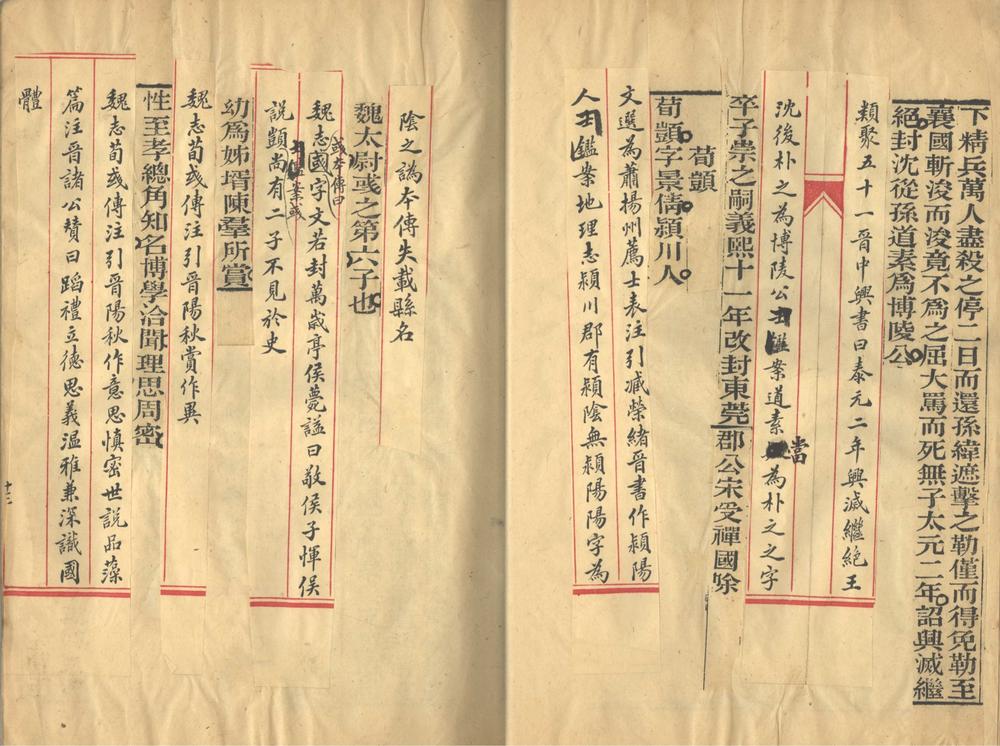 下精兵萬人盡殺之停二日而還孫緯遮擊之勒僅而得免勒至
襄國斬浚而浚竟不爲之屈大罵而死無子太元二年詔興滅繼
絕封沈從孫道素爲博陵公
類聚五十一晉中興書曰泰元二年興滅繼絕王
沈後朴之為博陵公士鑑案道素當為朴之之字
卒子崇之嗣義熙十一年改封東莞郡公宋受禪國除
荀顗
荀顗字景倩潁川人
文選為蕭揚州薦士表注引臧榮緒晉書作潁陽
人士鑑案地理志潁川郡有潁陰無潁陽陽字為
陰之譌本傳失載縣名
魏太尉彧之第六子也
魏志國字文若封萬歲亭侯薨謚曰敬侯子惲侯
或本傳曰
說顗尚有二子不見於史
士鑑案彧
幼爲姊壻陳羣所賞
魏志荀彧傳注引晉陽秋賞作異
性至孝總角知名博學洽聞理思周密
魏志荀彧傳注引晉陽秋作意思慎密世說品藻
篇注晉諸公贊曰蹈禮立德思義溫雅兼深識國
體
十三